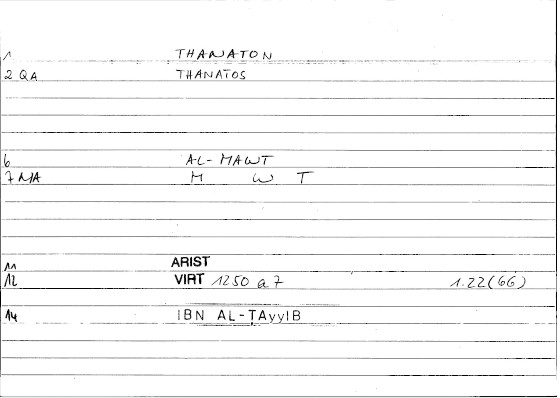 1 THANATON
2 QA THANATOS
6 AL-MAWT
7 NA M W T
11 ARIST
12 VIRT 1250 a 7 1.22(66)
14 IBN AL-ṬAyyIB